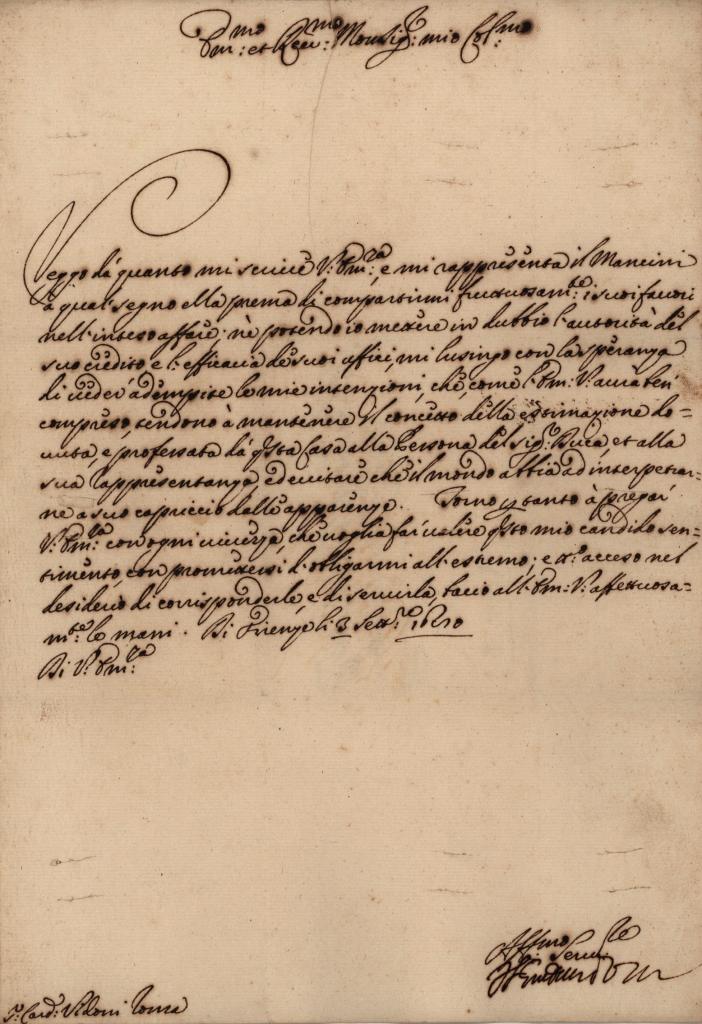 Em:mo et Reu:mo Monsig:r mio Col:mo
Veggo dà quanto mi scriue V: Em:za, e mi rappresenta il Mancini
à qual segno ella prema di compartirmi fruttuosam:te i suoi fauori
nell'inteso affare; nè potendo io mettere in dubbio l'autorità del
suo credito, e l'efficacia de suoi uffici, mi lusingo con la speranza
di ueder adempite le mie intenzioni, che, come l'Em: V: aurà ben
compreso, tendono à mantenere il concetto della estimazione do=
uuta, e professata dà q'sta Casa alla Persona del sig:r Duca, et alla
sua rappresentanza, ed euitare che il mondo abbia ad interpetrar=
ne a suo capriccio dalle apparenze. Torno p tanto à pregar
V: Em:za con ogni uiuezza, che uoglia far ualere q'sto mio candido sen=
timento, con promettersi d'obligarmi all'estremo; e acceso nel
desiderio di corrisponderle, e di seruirla, bacio all'Em: V: affettuosa=
m:te le mani. Di Firenze li 3 Sett:re
Di V: Em:za
Aff:mo Ser:re
S:r Card: Vidoni Roma